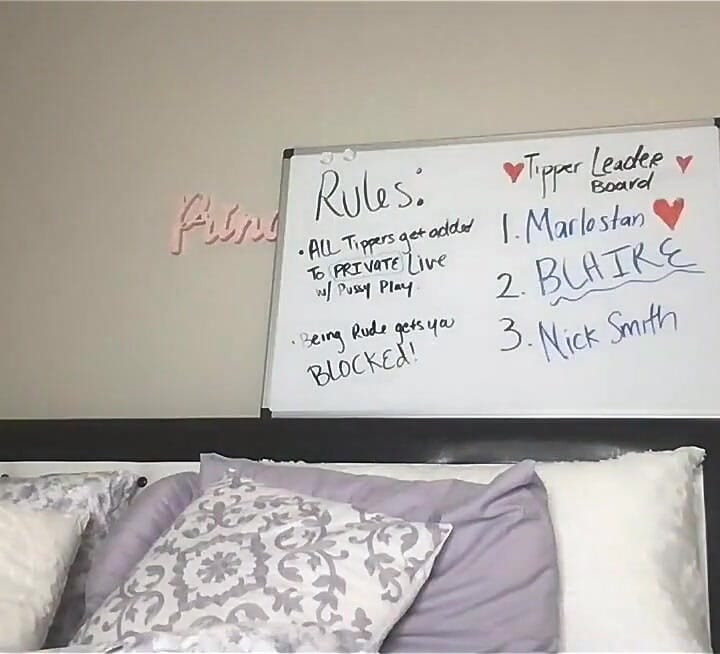 Princ
Rules:
• ALL Tippers get added
To PRIVATE Live
w/ Pussy Play.
• Being Rude gets you
BLOCKEd!
Tipper Leader
BoarD
1. Marlostan
2. BLAIRE
3. Nick Smith